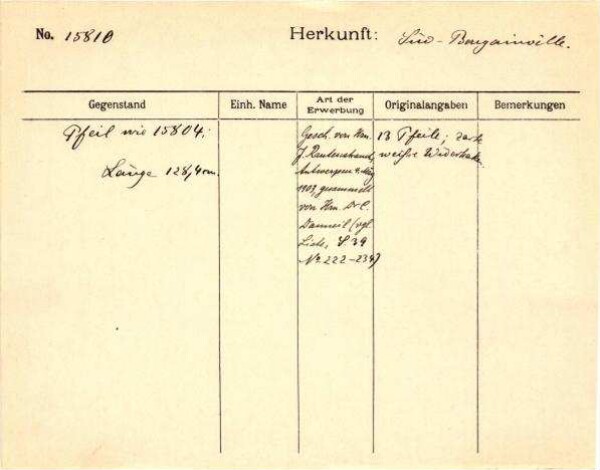 No. 15810
Herkunft: Süd-Bougainville.
Gegenstand
Einh. Name
Art der Erwerbung
Originalangaben
Bemerkungen
Pfeil wie 15804;
Länge 128,4 cm.
Gesch. von Hrn.
J. Rautenstrauch,
Antwerpen
1909, gesammelt
von Hrn. Dr C.
Danneil (vgl.
Liste, S. 39
No 222-234)
13 Pfeile; zarte
weisse Widerhaken